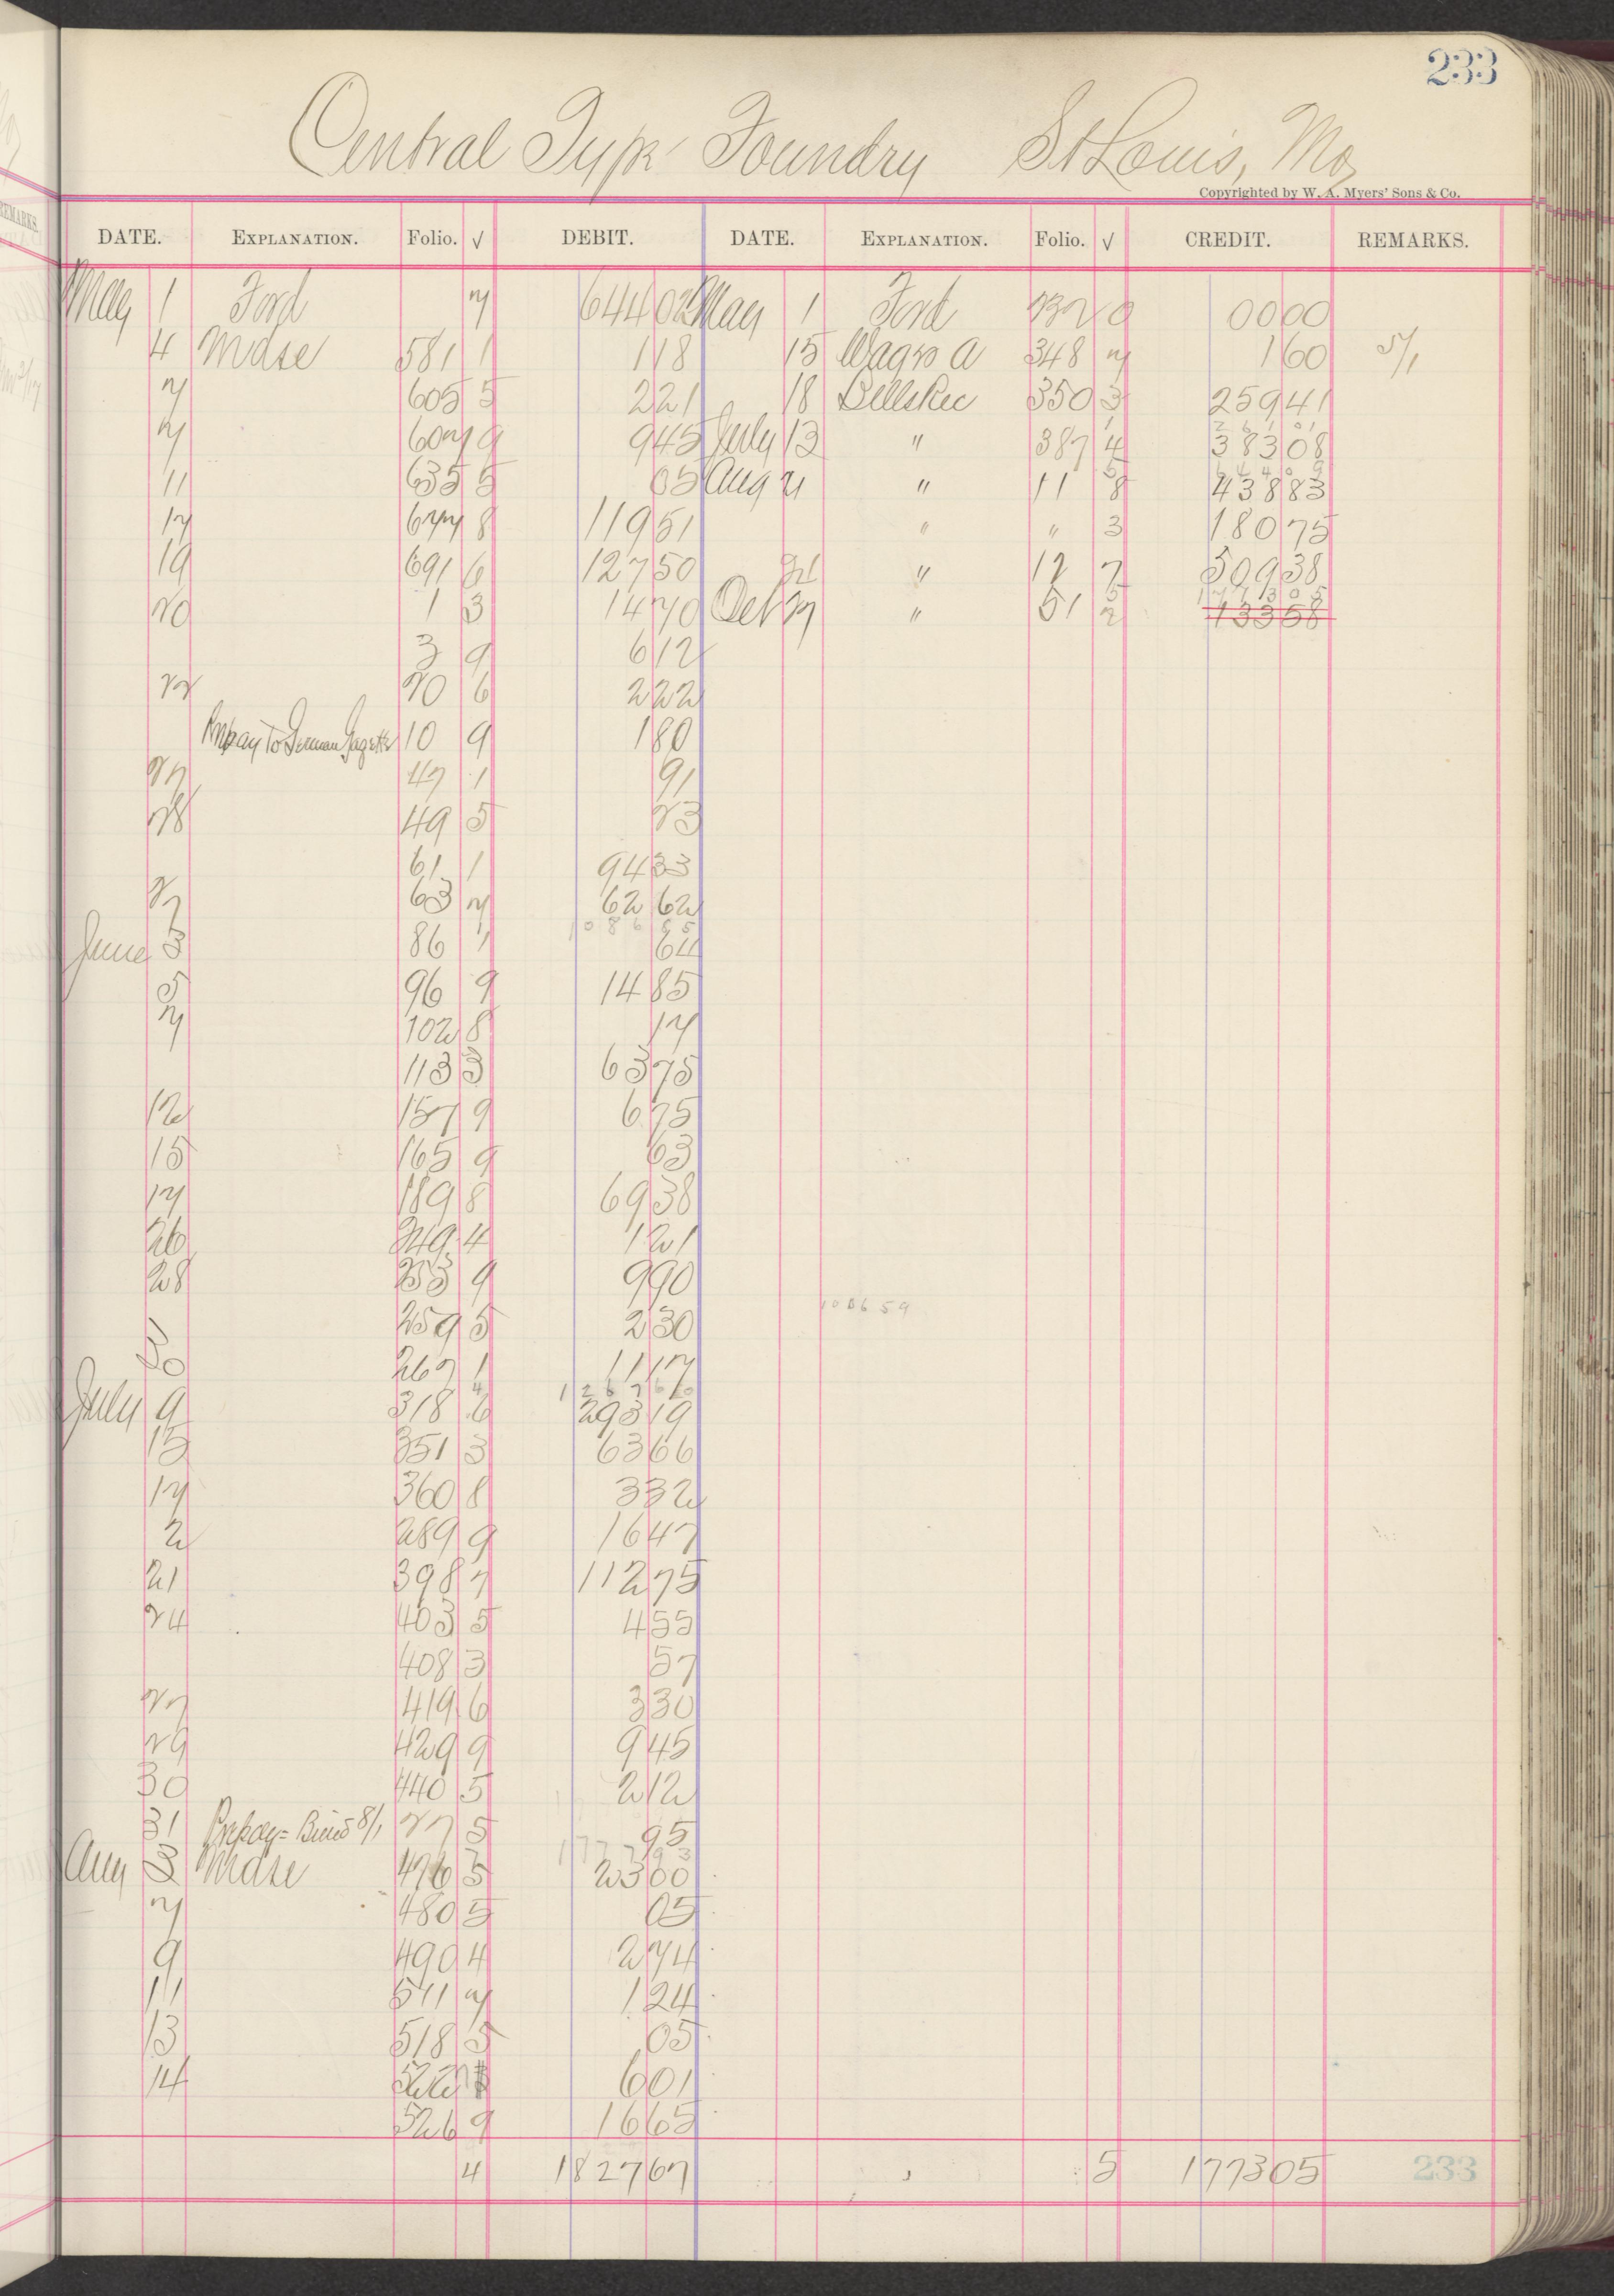 233
Central Type Foundry St Louis, Mo,
Copyrighted by W. A. Myers' Sons & Co.
DATE. EXPLANATION. Folio. √ DEBIT. DATE. EXPLANATION. Folio. √ CREDIT. REMARKS.
May 1 Ford 644 02 May 1 Ford 0000
4 Mdse 581 1 1 18 15 348 1 60 5/1
605 5 2 21 18 Bills Rec 350 3 259 41
9 45 July 13 " 387 4 383 08
11 635 5 05 Aug " 11 8 438 83
17 8 119 51 " " 3 180 75
19 691 6 127 50 " 12 7 509 38
20 1 3 14 70 Oct " 51 2 433 58
3 9 6 12
20 6 2 22
10 9 1 80
27 47 1 91
28 49 5 23
61 1 94 33
63 62 62
June 3 86 1 64
5 96 9 14 85
7 102 8 17
113 3 63 75
12 157 9 6 75
15 165 9 63
17 189 8 69 38
26 249 4 1 21
28 253 9 9 90
10866 59
259 5 2 30
30 267 1 11 17
July 9 318 6 293 19
13 351 3 63 66
17 360 8 3 32
2 289 9 16 47
21 398 7 112 75
24 403 5 4 55
408 3 57
27 419 6 3 30
29 429 9 9 45
30 440 5 2 12
31 27 5 95
Aug 3 Mdse 476 3 23 00
7 480 5 05
9 490 4 2 74
11 511 7 1 24
13 518 5 05
14 6 01
526 9 16 65
4 1827 67 5 1773 05 233